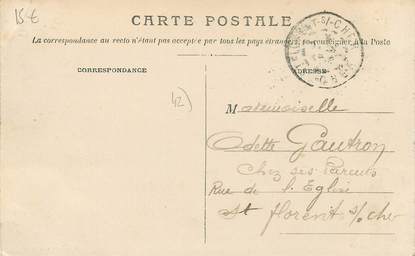 15€
CARTE POSTALE
La correspondance au recto n'étant pas acceptée par tous les pays étrangers, se renseigner à la Poste
CORRESPONDANCE
ADRESSE
42)
Mademoiselle
Odette Gautron
Chez ses Parents
Rue de l'Eglise
St florent s/cher